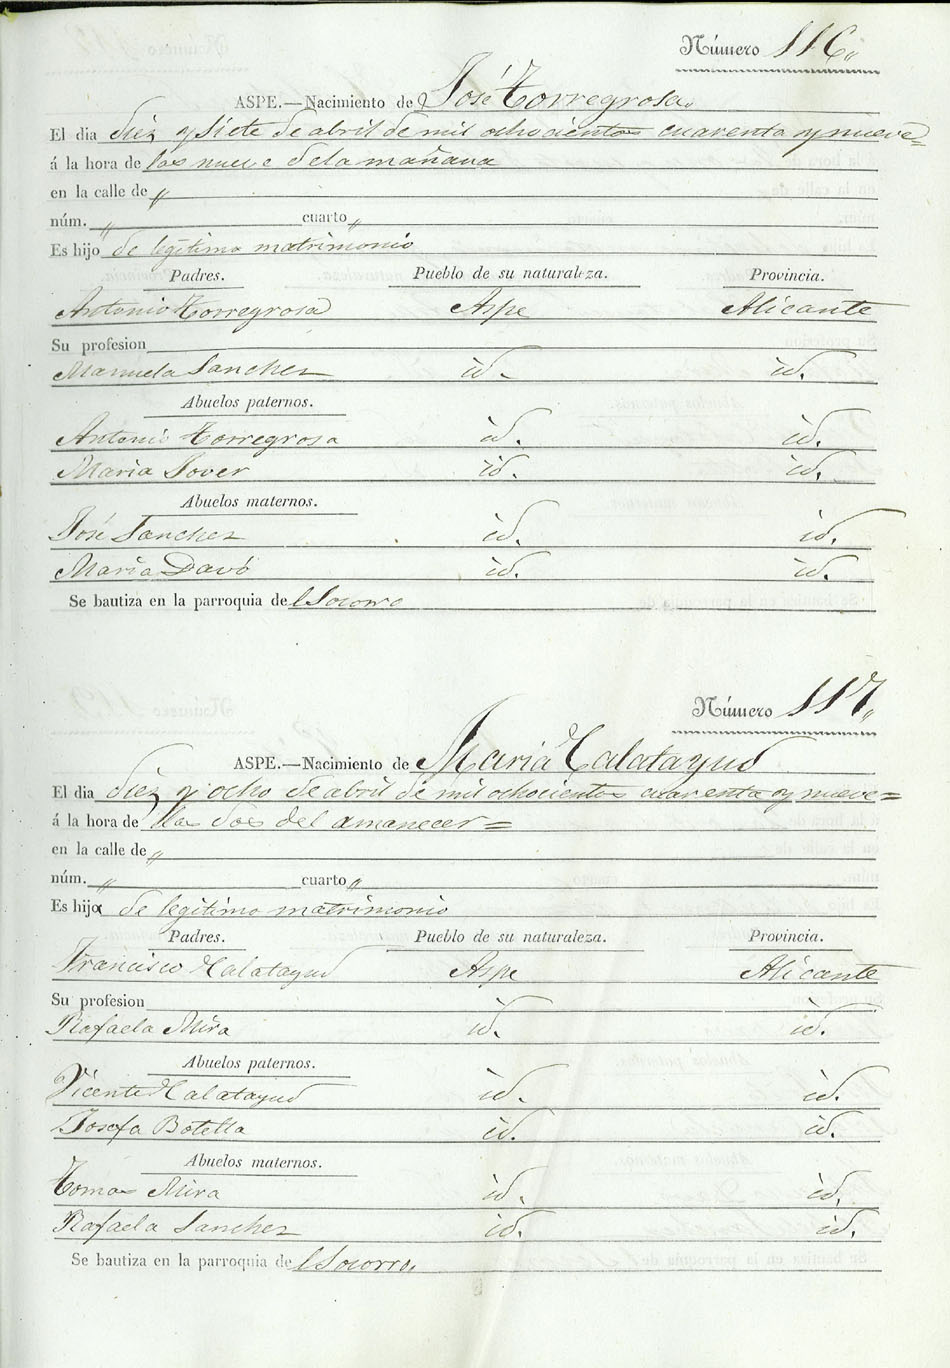 Número 116„
ASPE.—Nacimiento de José Torregrosa.
El dia diez y siete de abril de mil ochocientos cuarenta y nueve=
á la hora de las nueve de la mañana
en la calle de „
núm. „ cuarto „
Es hijo de legitimo matrimonio
Padres. Pueblo de su naturaleza. Provincia.
Antonio Torregrosa Aspe Alicante
Su profesion
Manuela Sanchez id. id.
Abuelos paternos.
Antonio Torregrosa id. id.
Maria Sover id. id.
Abuelos maternos.
José Sanchez id. id.
Maria Davó id. id.
Se bautiza en la parroquia del Socorro
Número 117„
ASPE.—Nacimiento de Maria Calatayud
El dia diez y ocho de abril de mil ochocientos cuarenta y nueve=
á la hora de las dos del amanecer=
en la calle de „
núm. „ cuarto „
Es hija de legitimo matrimonio
Padres. Pueblo de su naturaleza. Provincia.
Francisco Calatayud Aspe Alicante
Su profesion
Rafaela Mira id. id.
Abuelos paternos.
Vicente Calatayud id. id.
Josefa Botella id. id.
Abuelos maternos.
Tomas Mira id. id.
Rafaela Sanchez id. id.
Se bautiza en la parroquia del Socorro.